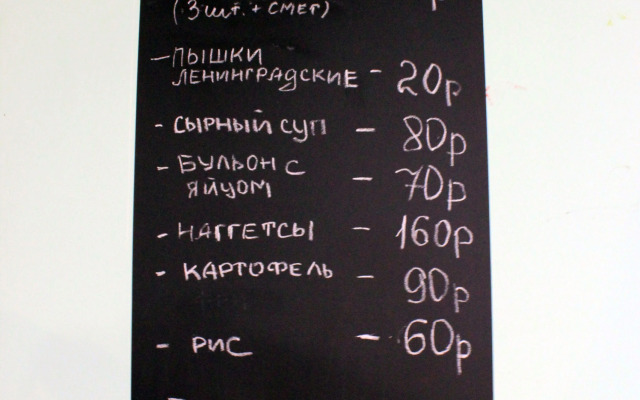 (3 шт. + СМЕТ)
- ПЫШКИ
ЛЕНИНГРАДСКИЕ - 20р
- СЫРНЫЙ СУП - 80р
- БУЛЬОН С
ЯЙЦОМ - 70р
- НАГГЕТСЫ - 160р
- КАРТОФЕЛЬ - 90р
- РИС - 60р